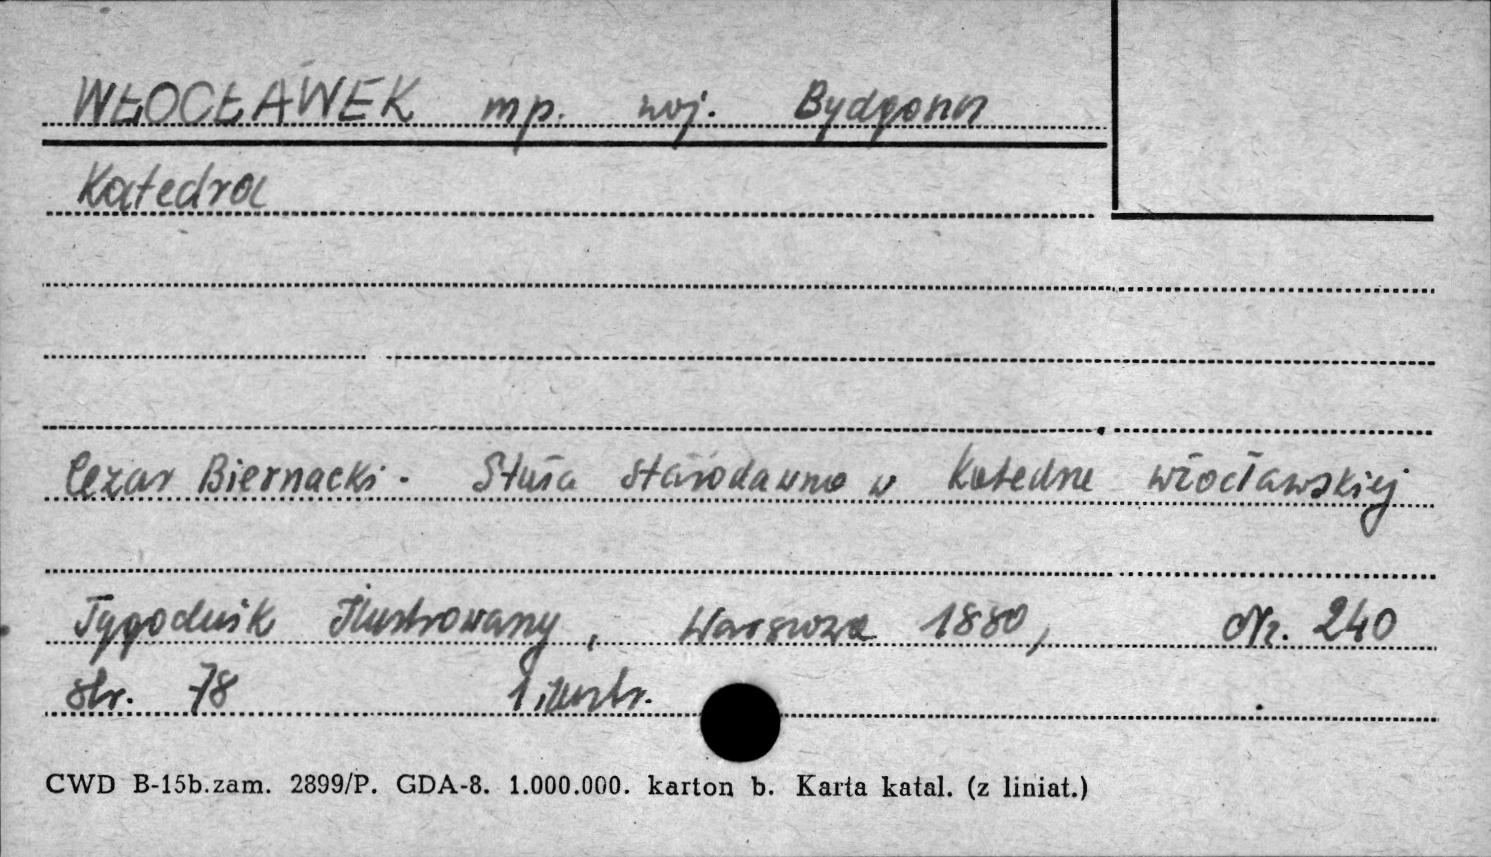 WŁOCŁAWEK mp. woj. Bydgoszcz
Katedra
Cezar Biernacki. Stuła starodawna w Katedrze włocławskiej
Tygodnik Ilustrowany, Warszawa 1880, Nr. 240
str. 78 1 ilustr.
CWD B-15b.zam. 2899/P. GDA-8. 1.000.000. karton b. Karta katal. (z liniat.)